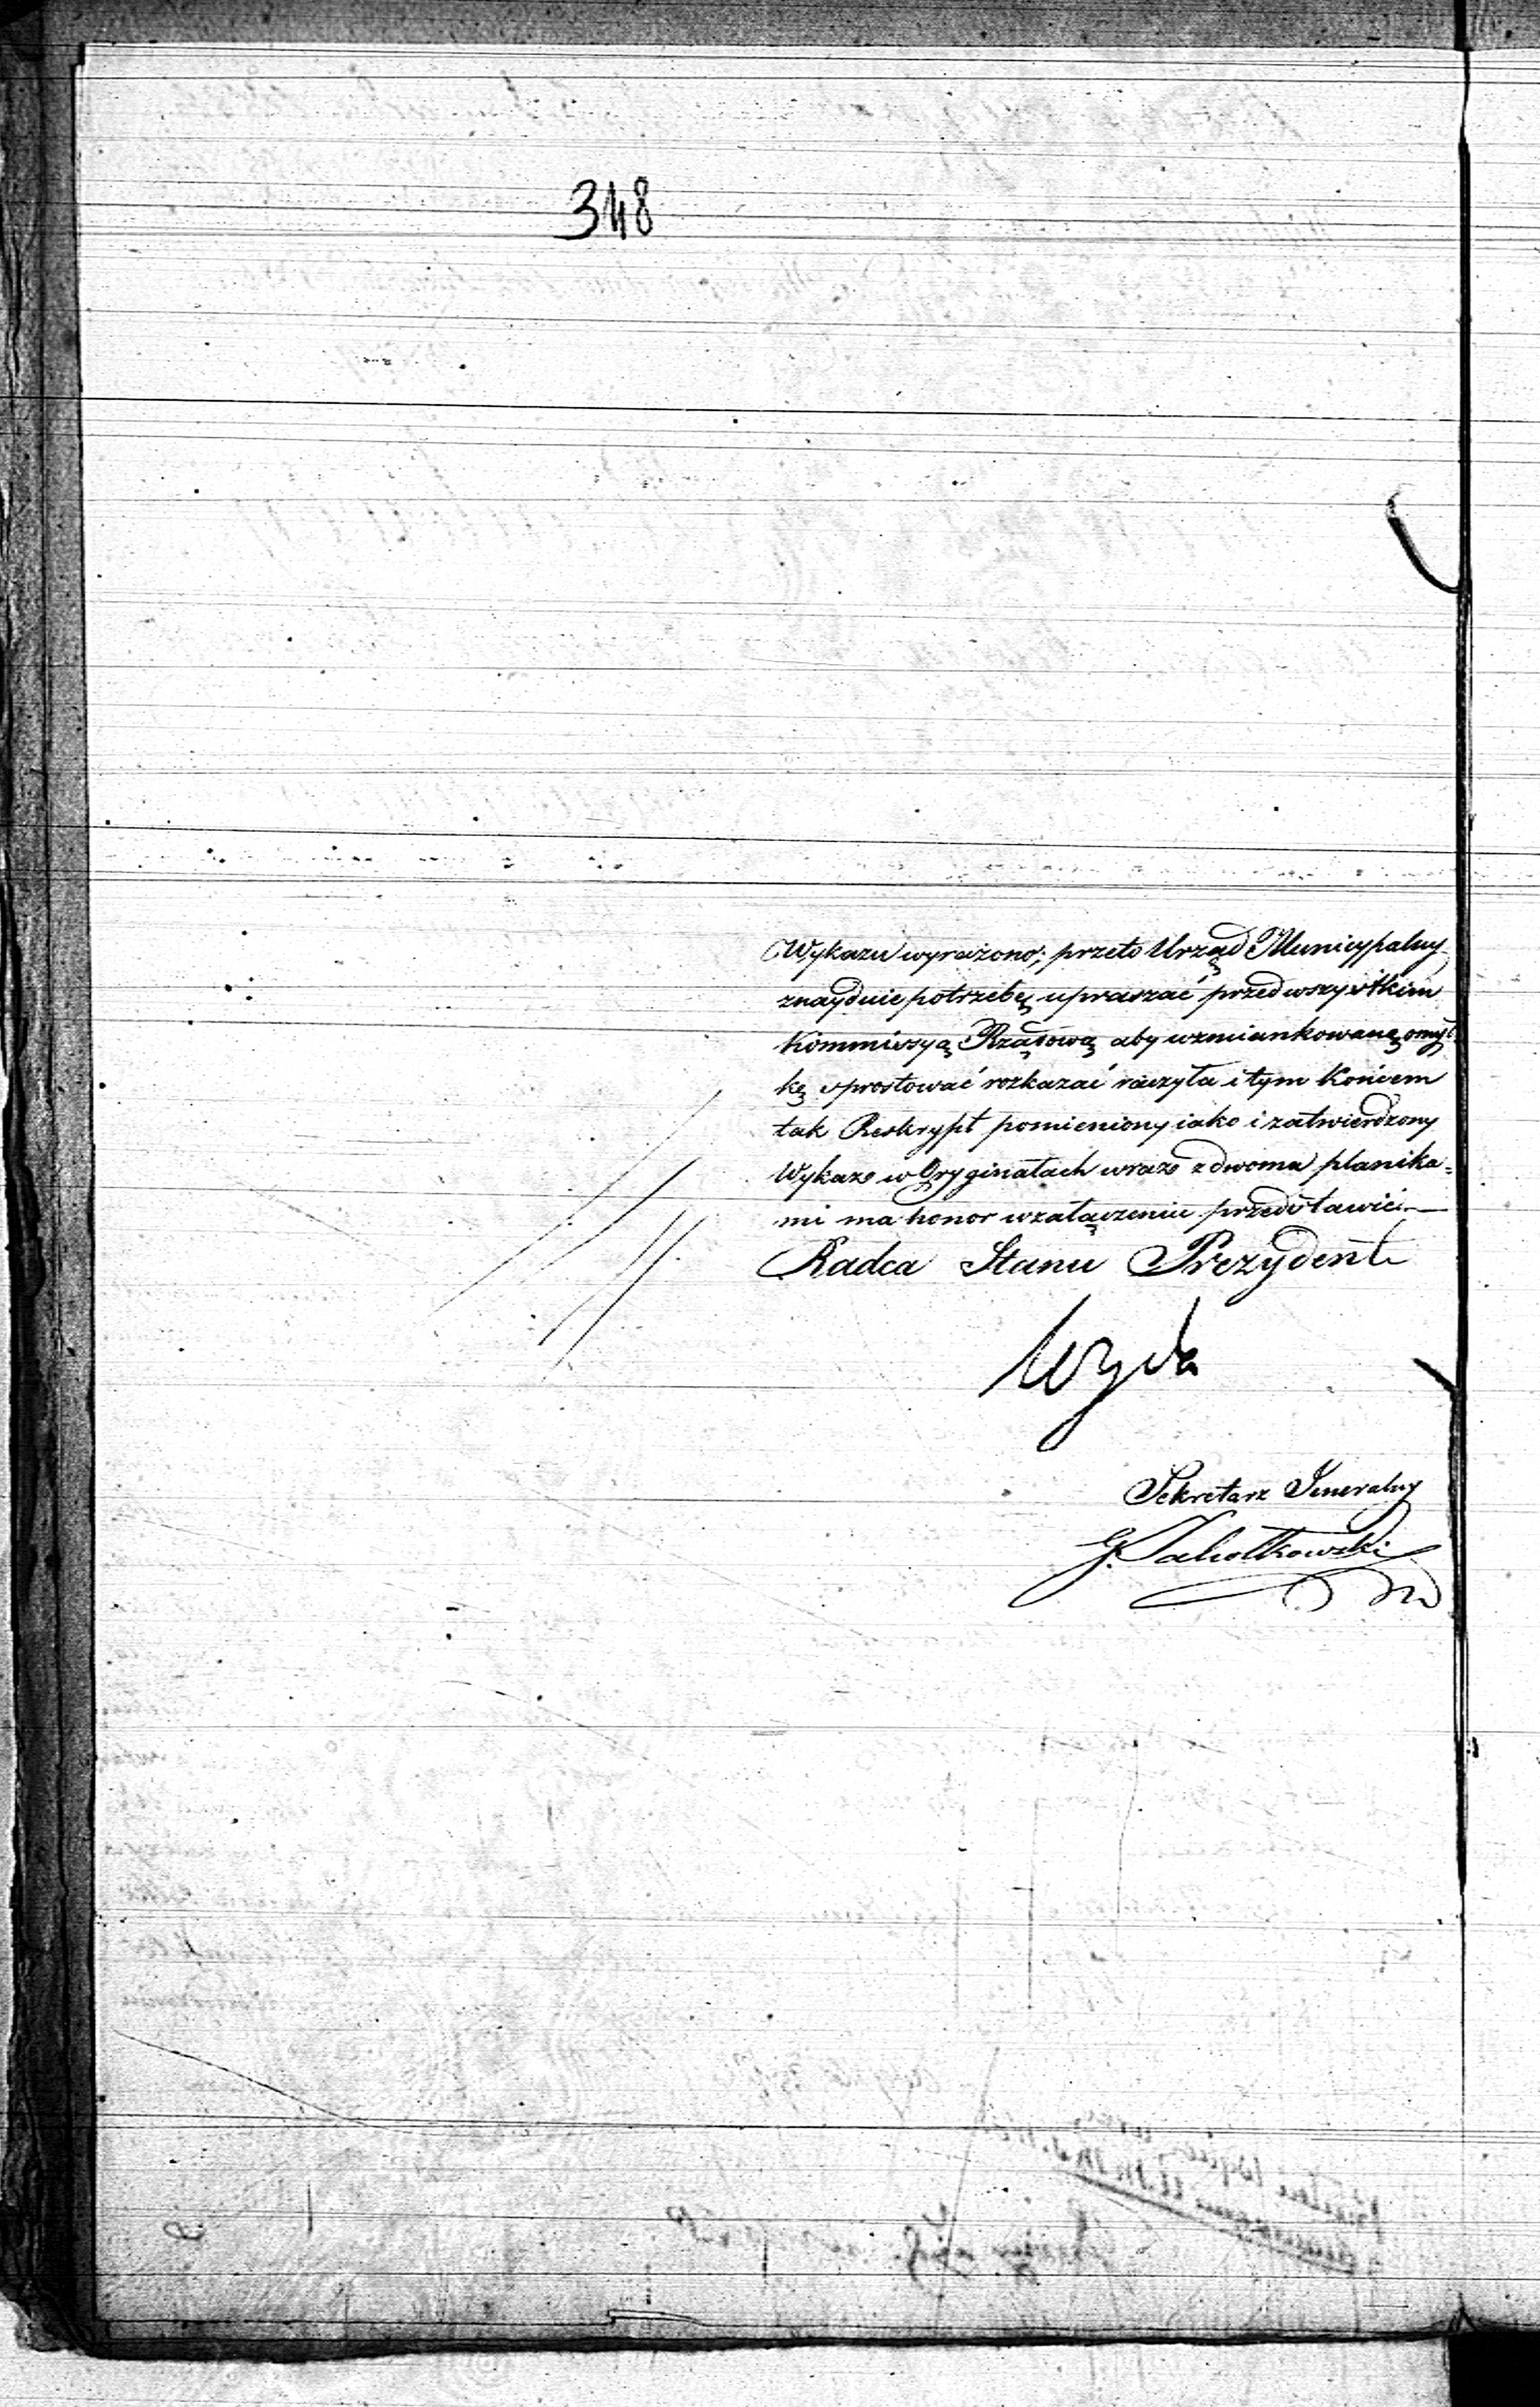 348
Wykazu wyrażono; przeto Urząd Municypalny
znayduie potrzebę upraszać przedwszystkim
Kommissyą Rządową aby wzmiankowaną omył
kę sprostować rozkazać raczyła i tym Końcem
tak Reskrypt pomieniony iako i zatwierdzony
Wykaz w Oryginałach wraz z dwoma planika=
mi ma honor w załączeniu przedstawić.—
Radca Stanu Prezydent
Woyda
Sekretarz Jeneralny
G. Jahołkowski